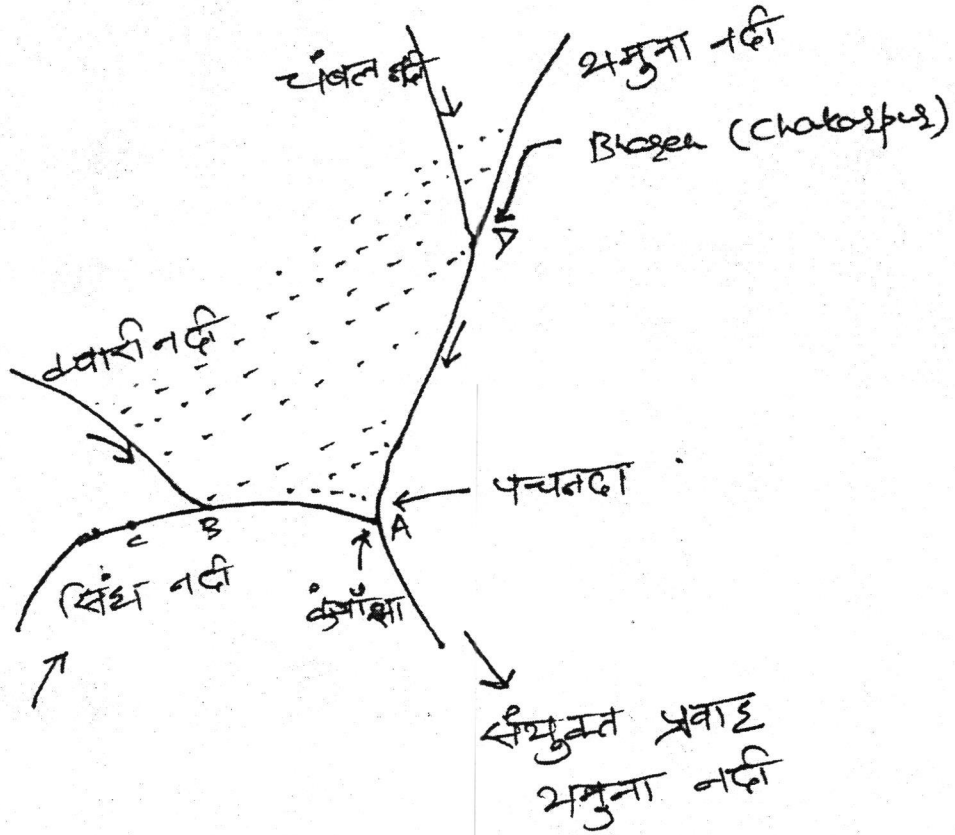 चंबल नदी
यमुना नदी
Bhareh (Chakarpur)
D
क्वारी नदी
पचनदा
A
B
C
सिंध नदी
संयुक्त प्रवाह
यमुना नदी